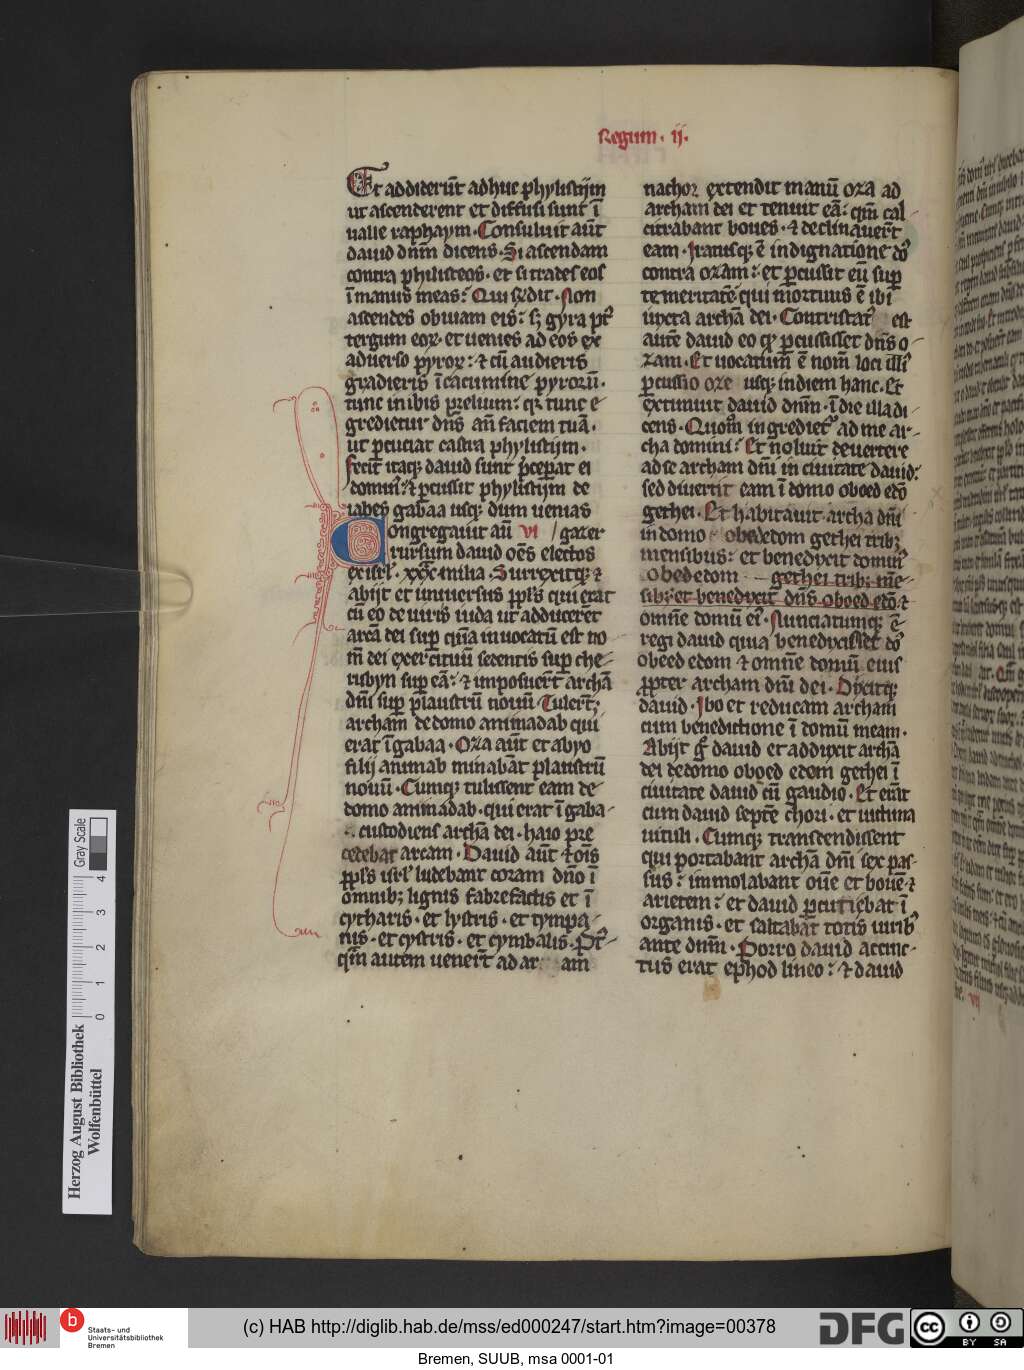 Regum · ij·
Et addiderũt adhuc phylistijm
ut ascenderent et diffusi sunt ĩ
ualle raphaym · Consuluit aũt
dauid dñm dicens · Si ascendam
contra philisteos · et si trades eos
ĩ manus meas: Qui rñdit · Non
ascendes obuiam eis: sꝫ gyra pꝰ
tergum eoꝝ · et uenies ad eos ex
aduerso pyroꝝ: ⁊ cũ audieris
gradieris ĩ cacumine pyrorũ ·
tunc inibis prelium: qꝛ tunc e
gredietur dñs añ faciem tuã ·
ut ꝑcuciat castra phylistijm ·
fecit itaqꝫ dauid sicut p̃ceperat ei
dominꝰ: ⁊ ꝑcussit phylistijm de
iabes gabaa usqꝫ dum uenias
ongregauit aũt vi / gazer
rursum dauid oẽs electos
ex isrł · xxx milia · Surrexitqꝫ ⁊
abijt et uniuersus ppłs qui erat
cũ eo de uiris iuda ut adducerẽt
arcã dei suꝑ quã inuocatũ est no
m̃ dei exercituũ sedentis suꝑ che
rubyn suꝑ eã: ⁊ imposuerт̃ archã
dñi suꝑ plaustrũ nouũ · Tulerт̃qꝫ
archam de domo aminadab qui
erat ĩ gabaa · Oza aũt et ahyo
filij aminab minabãt plaustrũ
nouũ · Cumqꝫ tulissent eam de
domo aminadab · qui erat ĩ gaba
custodiens archã dei · haio pre
cedebat arcam · Dauid aũt ⁊ oĩs
ppłs isrł ludebant coram dño ĩ
omnibꝫ lignis fabrefactis et ĩ
cytharis · et lystris · et tympa
nis · et cystris · et cymbalis · Pꝰt
qm̃ autem uenerт̃ ad ar am
nachor extendit manũ oza ad
archam dei et tenuit eã: qm̃ cal
citrabant boues · ⁊ declinauerт̃
eam · Iratusqꝫ ẽ indignatione dñs
contra ozam: et ꝑcussit eũ suꝑ
temeritatẽ qui mortuus ẽ ibi
iuxta archã dei · Contristatꝰ est
autẽ dauid eo qꝙ ꝑcussisset dñs o
zam · Et uocatum̃ ẽ nom̃ loci illiꝰ
ꝑcussio oze usqꝫ in diem hanc · Et
extimuit dauid dñm · ĩ die illa di
cens · Quom̃ ingredietꝰ ad me ar
cha domini: Et noluit deuertere
ad se archam dñi in ciuitatẽ dauid:
sed diuertit eam ĩ domo oboed edõ
gethei · Et habitauit archa dñi
in domo obededom gethei tribꝫ
mensibus: et benedyxit dominꝰ
obededom gethei tribꝫ mẽ
sibꝫ: et benedyxit dñs oboed edõ ⁊
omnẽ domũ eiꝰ · Nunciatumqꝫ ẽ
regi dauid quia benedyxisset dñs
obeed edom ⁊ omnẽ domũ eius
ꝓpter archam dñi dei · Dyxitqꝫ
dauid · Ibo et reducam archam
cum benedictione ĩ domũ meam ·
Abijt g̃ dauid et addux̃it archã
dei de domo oboed edom gethei ĩ
ciuitatẽ dauid cũ gaudio · Et erãt
cum dauid septẽ chori · et uictima
uituli · Cumqꝫ transcendissent
qui portabant archã dñi sex pas
sus: immolabant ouẽ et bouẽ ⁊
arietem: et dauid ꝑcutiebat ĩ
organis · et saltabat totis uiribꝰ
ante dñm · Porro dauid accinc
tus erat ephod lineo: ⁊ dauid
Herzog August Bibliothek
Wolfenbüttel
Gray Scale
0 1 2 3 4
b Staats- und
Universitätsbibliothek
Bremen
(c) HAB http://diglib.hab.de/mss/ed000247/start.htm?image=00378
DFG
cc BY SA
Bremen, SUUB, msa 0001-01